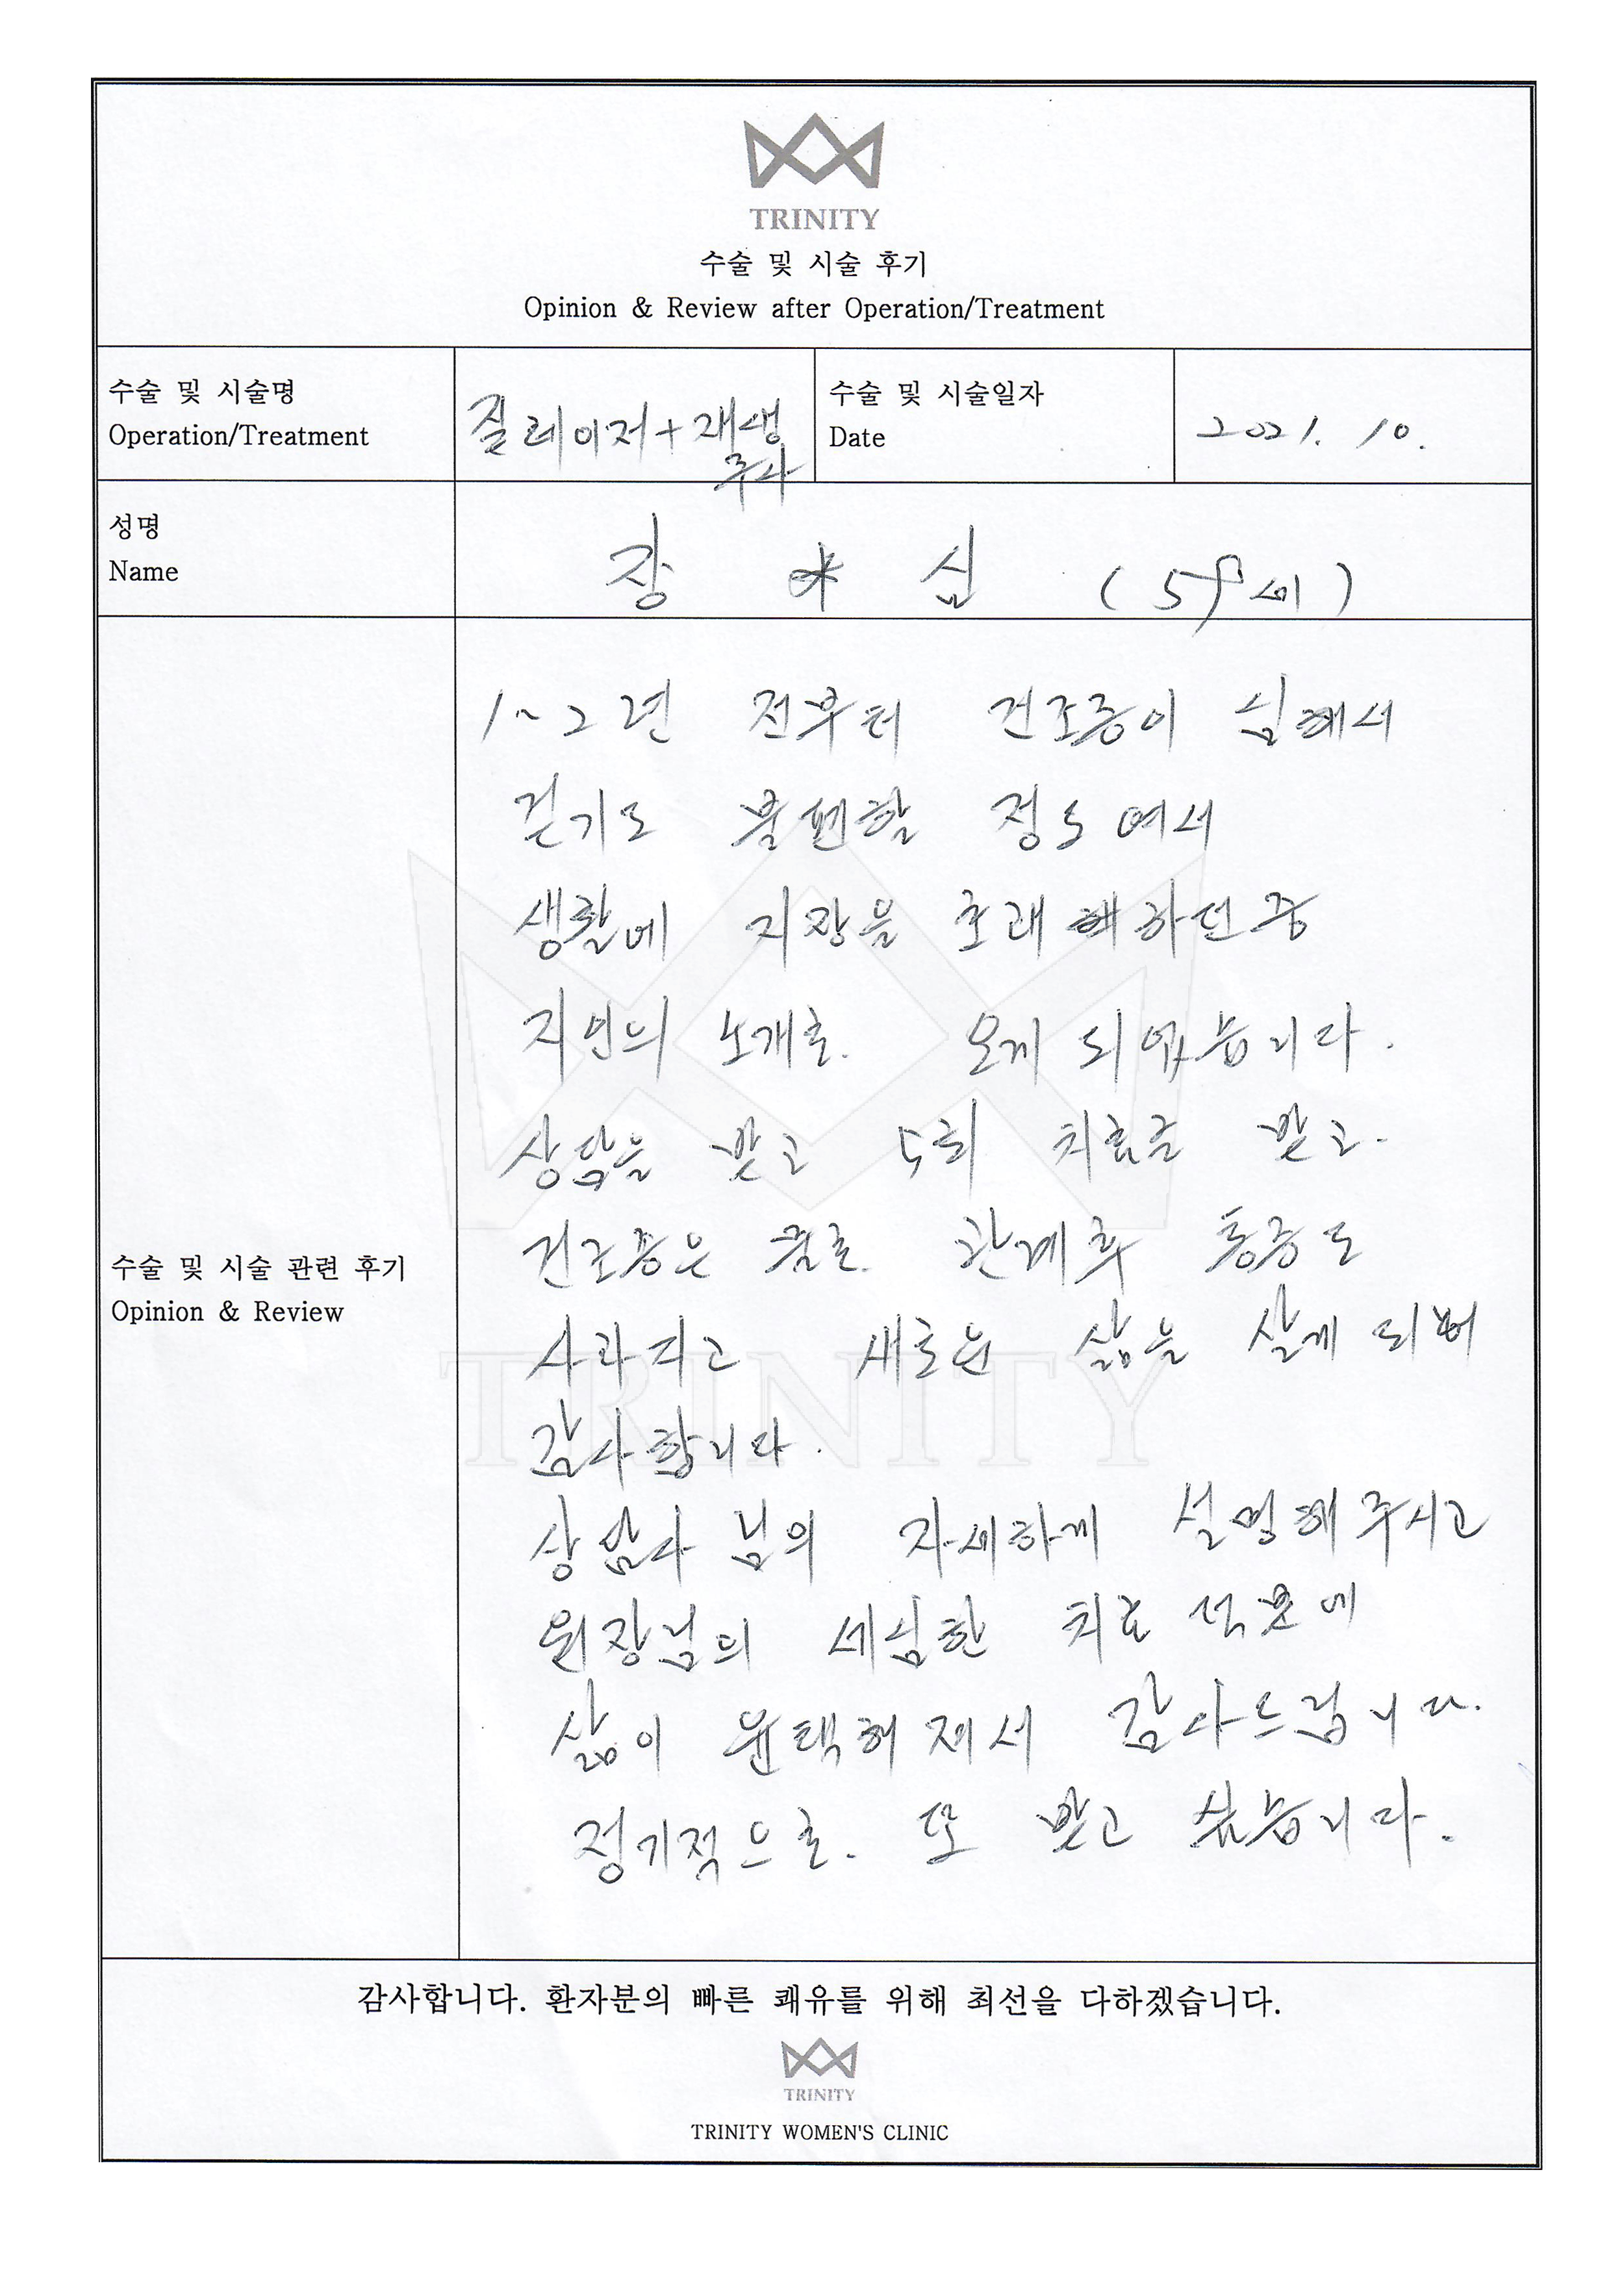 TRINITY
수술 및 시술 후기
Opinion & Review after Operation/Treatment
수술 및 시술명
Operation/Treatment
질레이저+재생
주사
수술 및 시술일자
Date
2021. 10.
성명
Name
장 * 심 (59세)
1~2년 전부터 건조증이 심해서
걷기도 불편할 정도여서
생활에 지장을 초래 하던중
지인의 소개로. 오게 되었습니다.
상담을 받고 5회 치료를 받고.
건조증은 물론. 관계후 통증도
사라지고 새로운 삶을 살게 되어
감사합니다.
상담사 님의 자세하게 설명해 주시고
원장님의 세심한 치료 덕분에
삶이 윤택해져서 감사드립니다.
정기적으로. 또 받고 싶습니다.
수술 및 시술 관련 후기
Opinion & Review
TRINITY
감사합니다. 환자분의 빠른 쾌유를 위해 최선을 다하겠습니다.
TRINITY
TRINITY WOMEN'S CLINIC